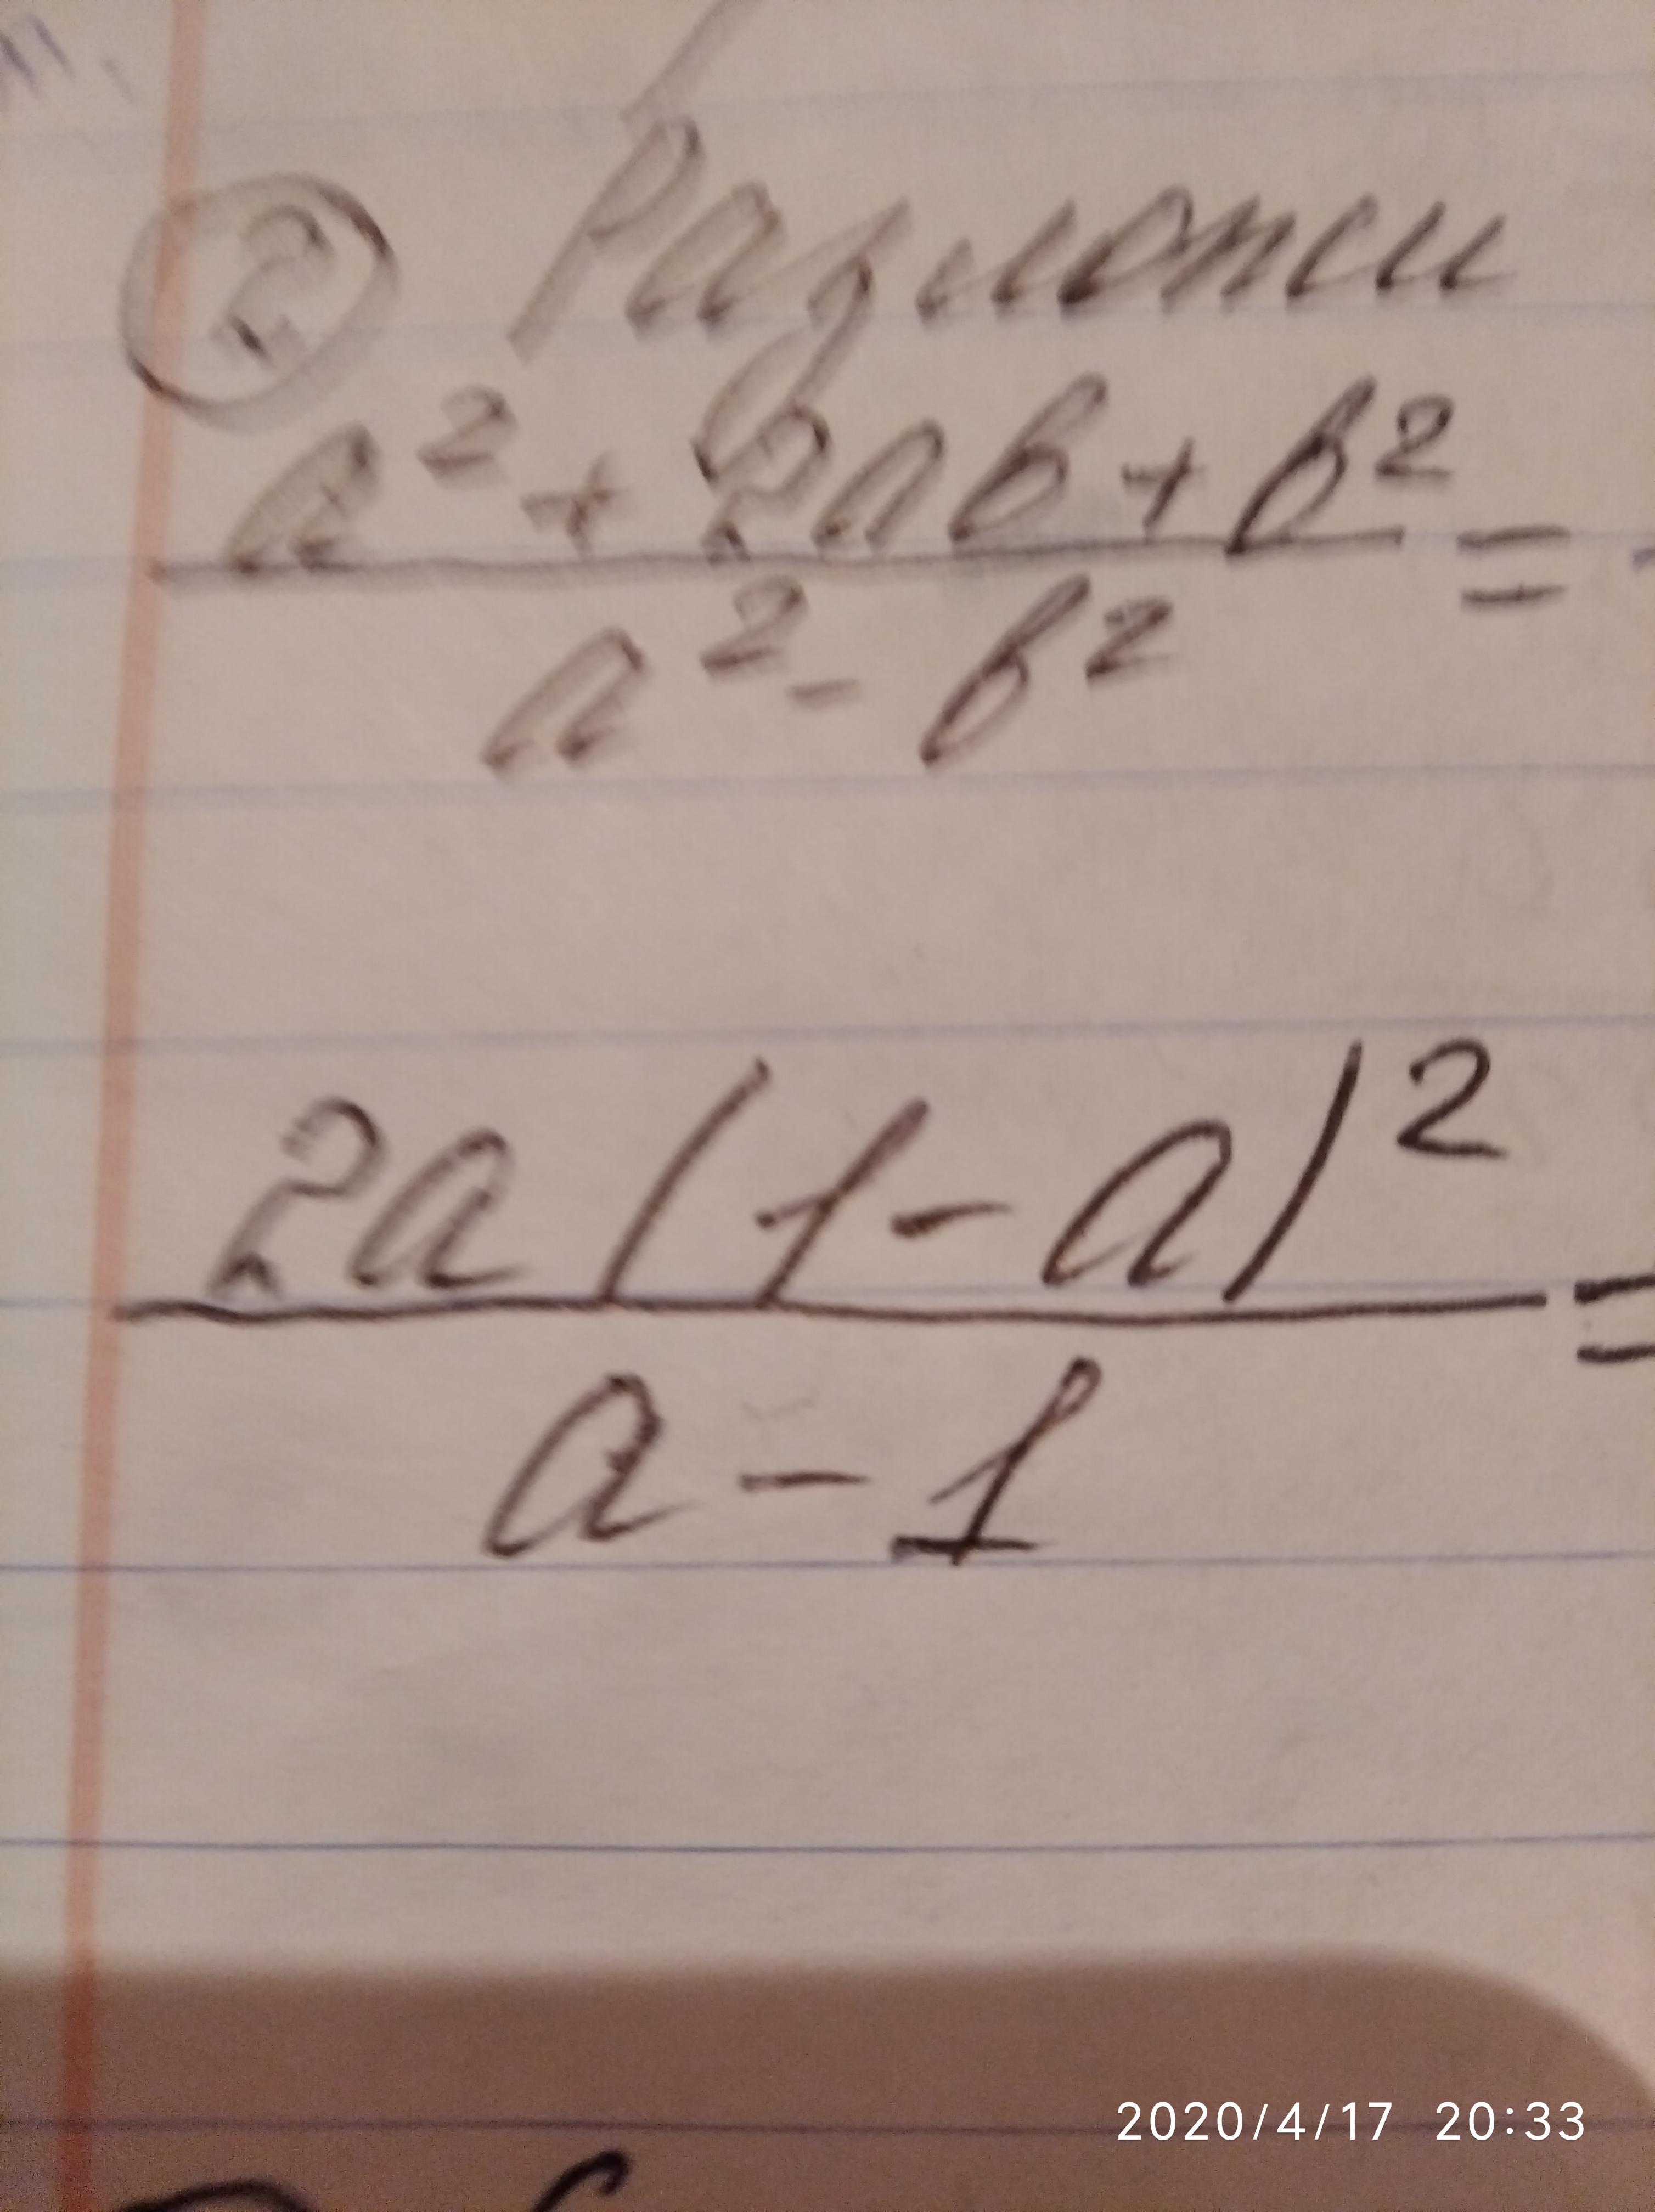 ② Разложи
a² + 2ab + b²
a² - b²
=
2a(1 - a)²
a - 1
=
2020/4/17 20:33